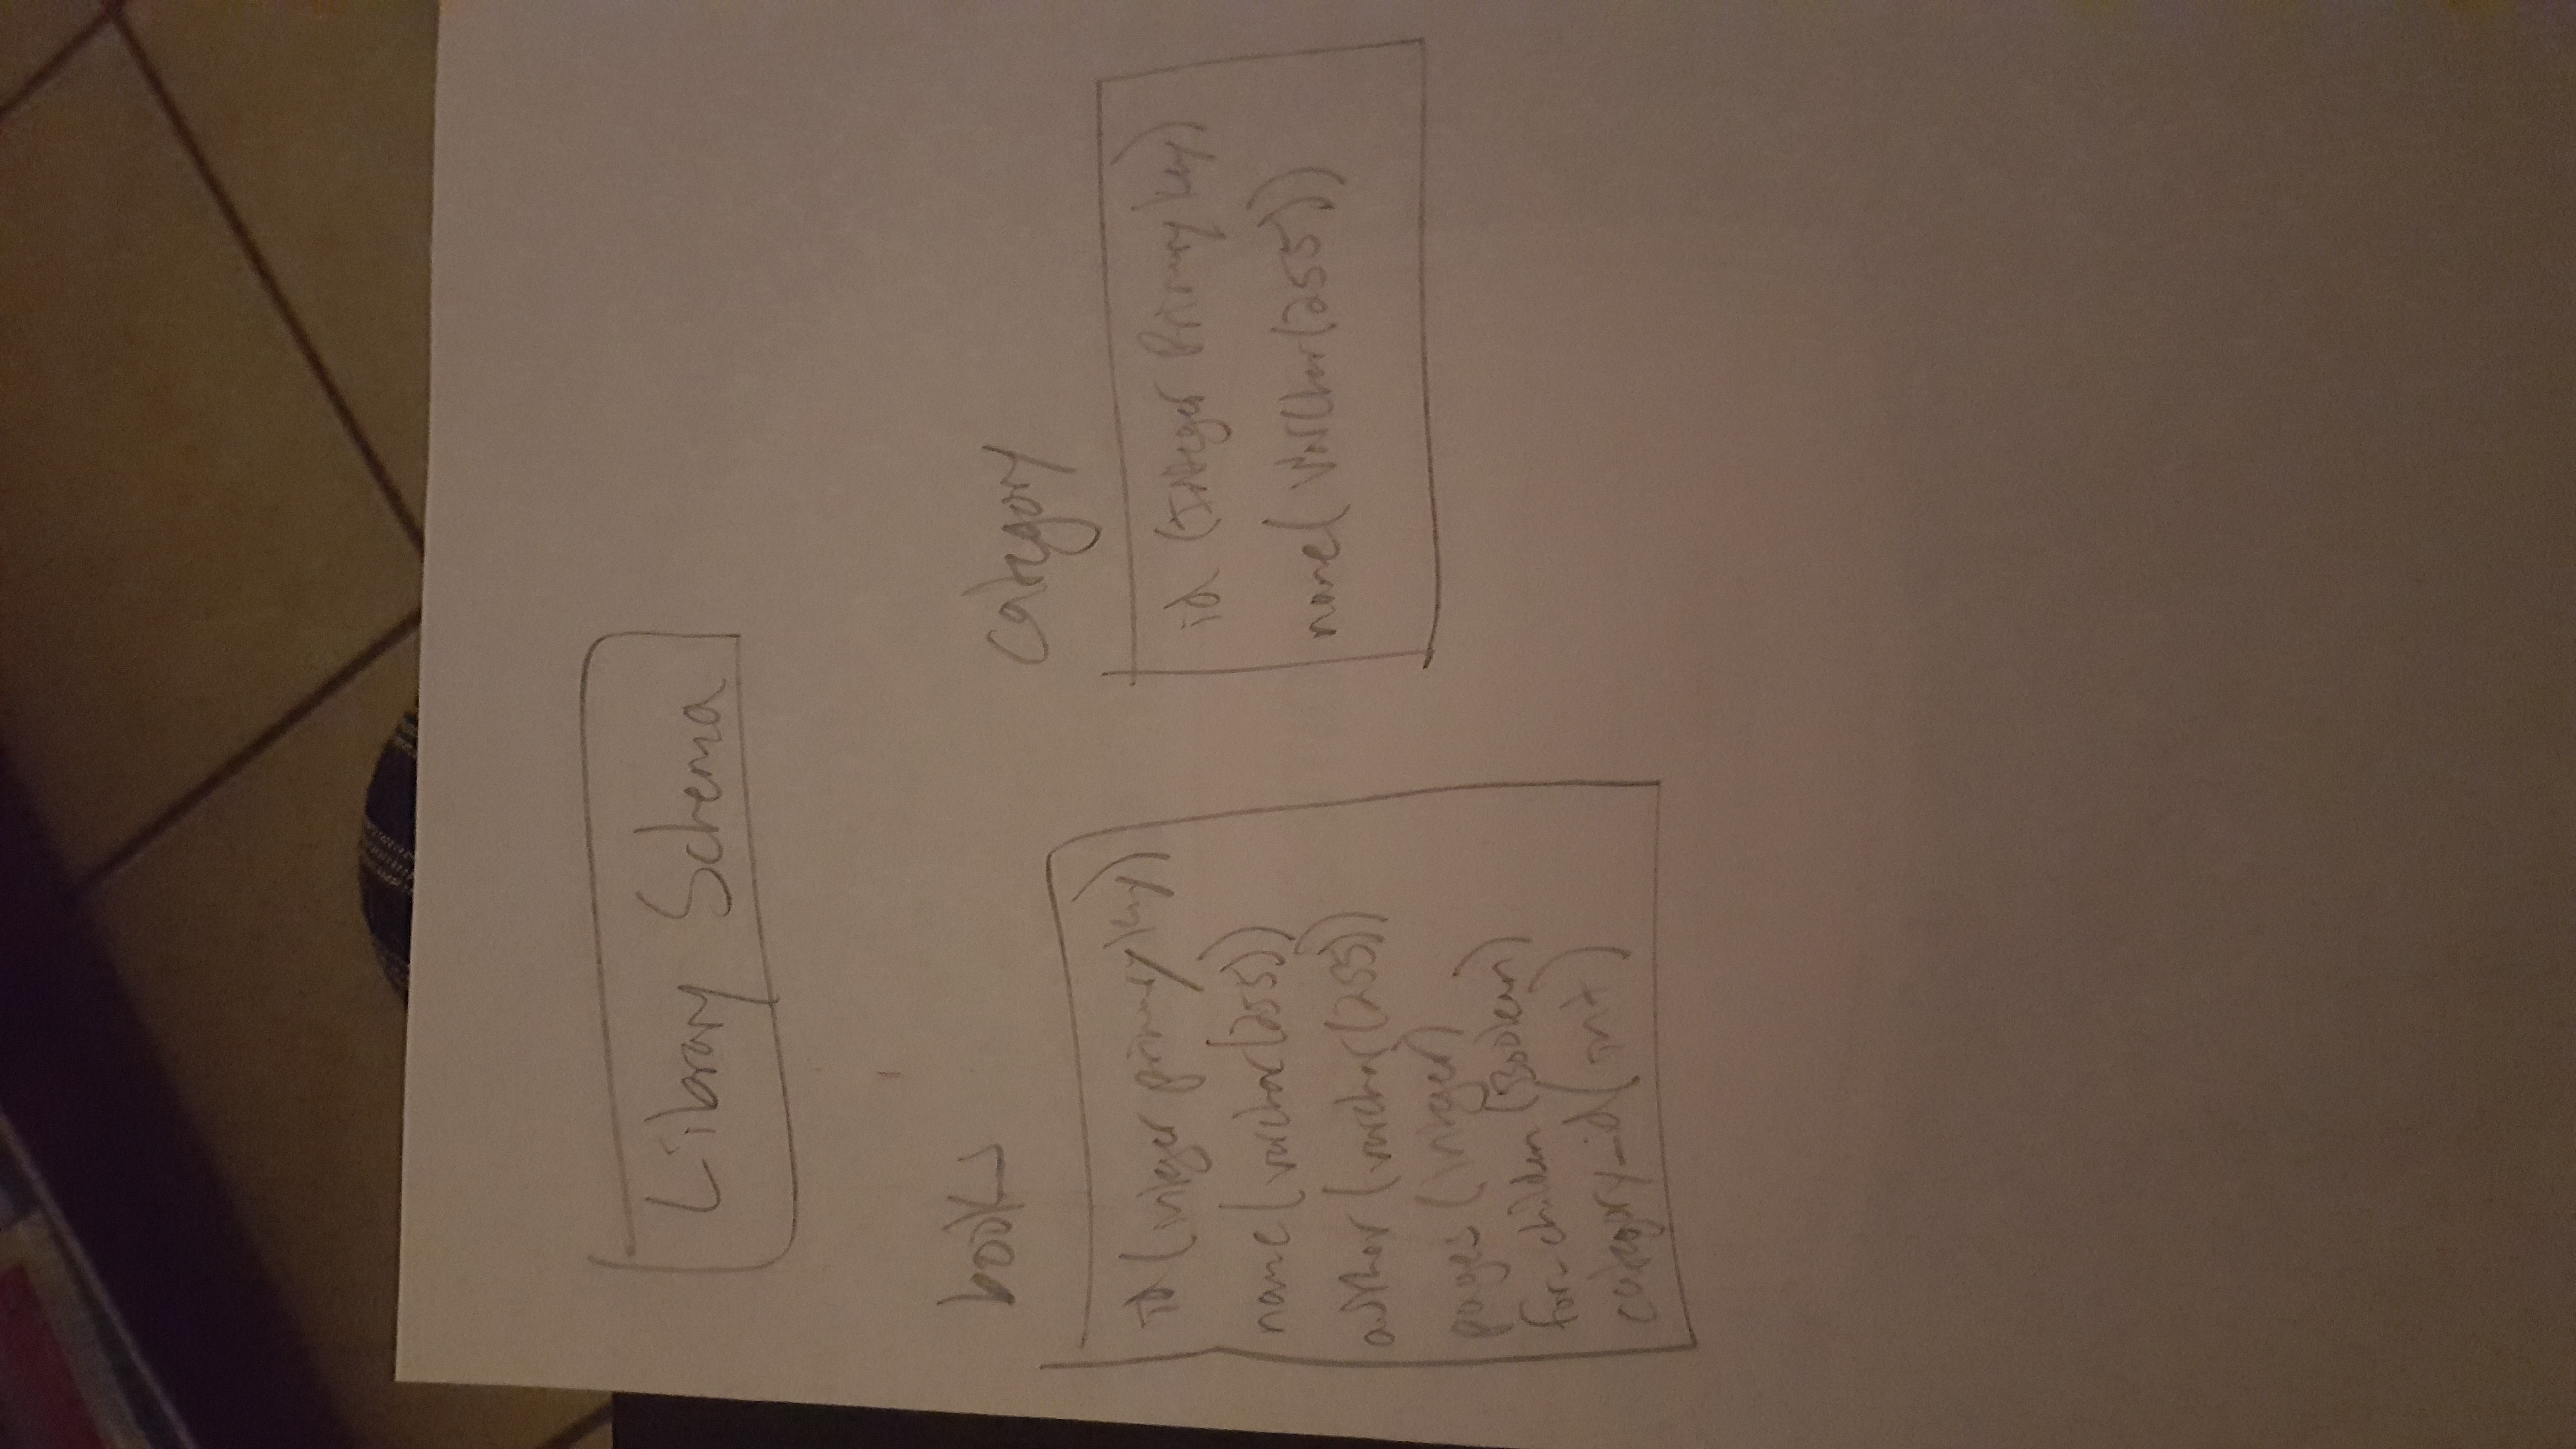 Library Schema
books
id (integer primary key)
name (varchar(255))
author (varchar(255))
pages (integer)
for_children (Boolean)
category_id (int)
category
id (Integer Primary key)
name (Varchar(255))